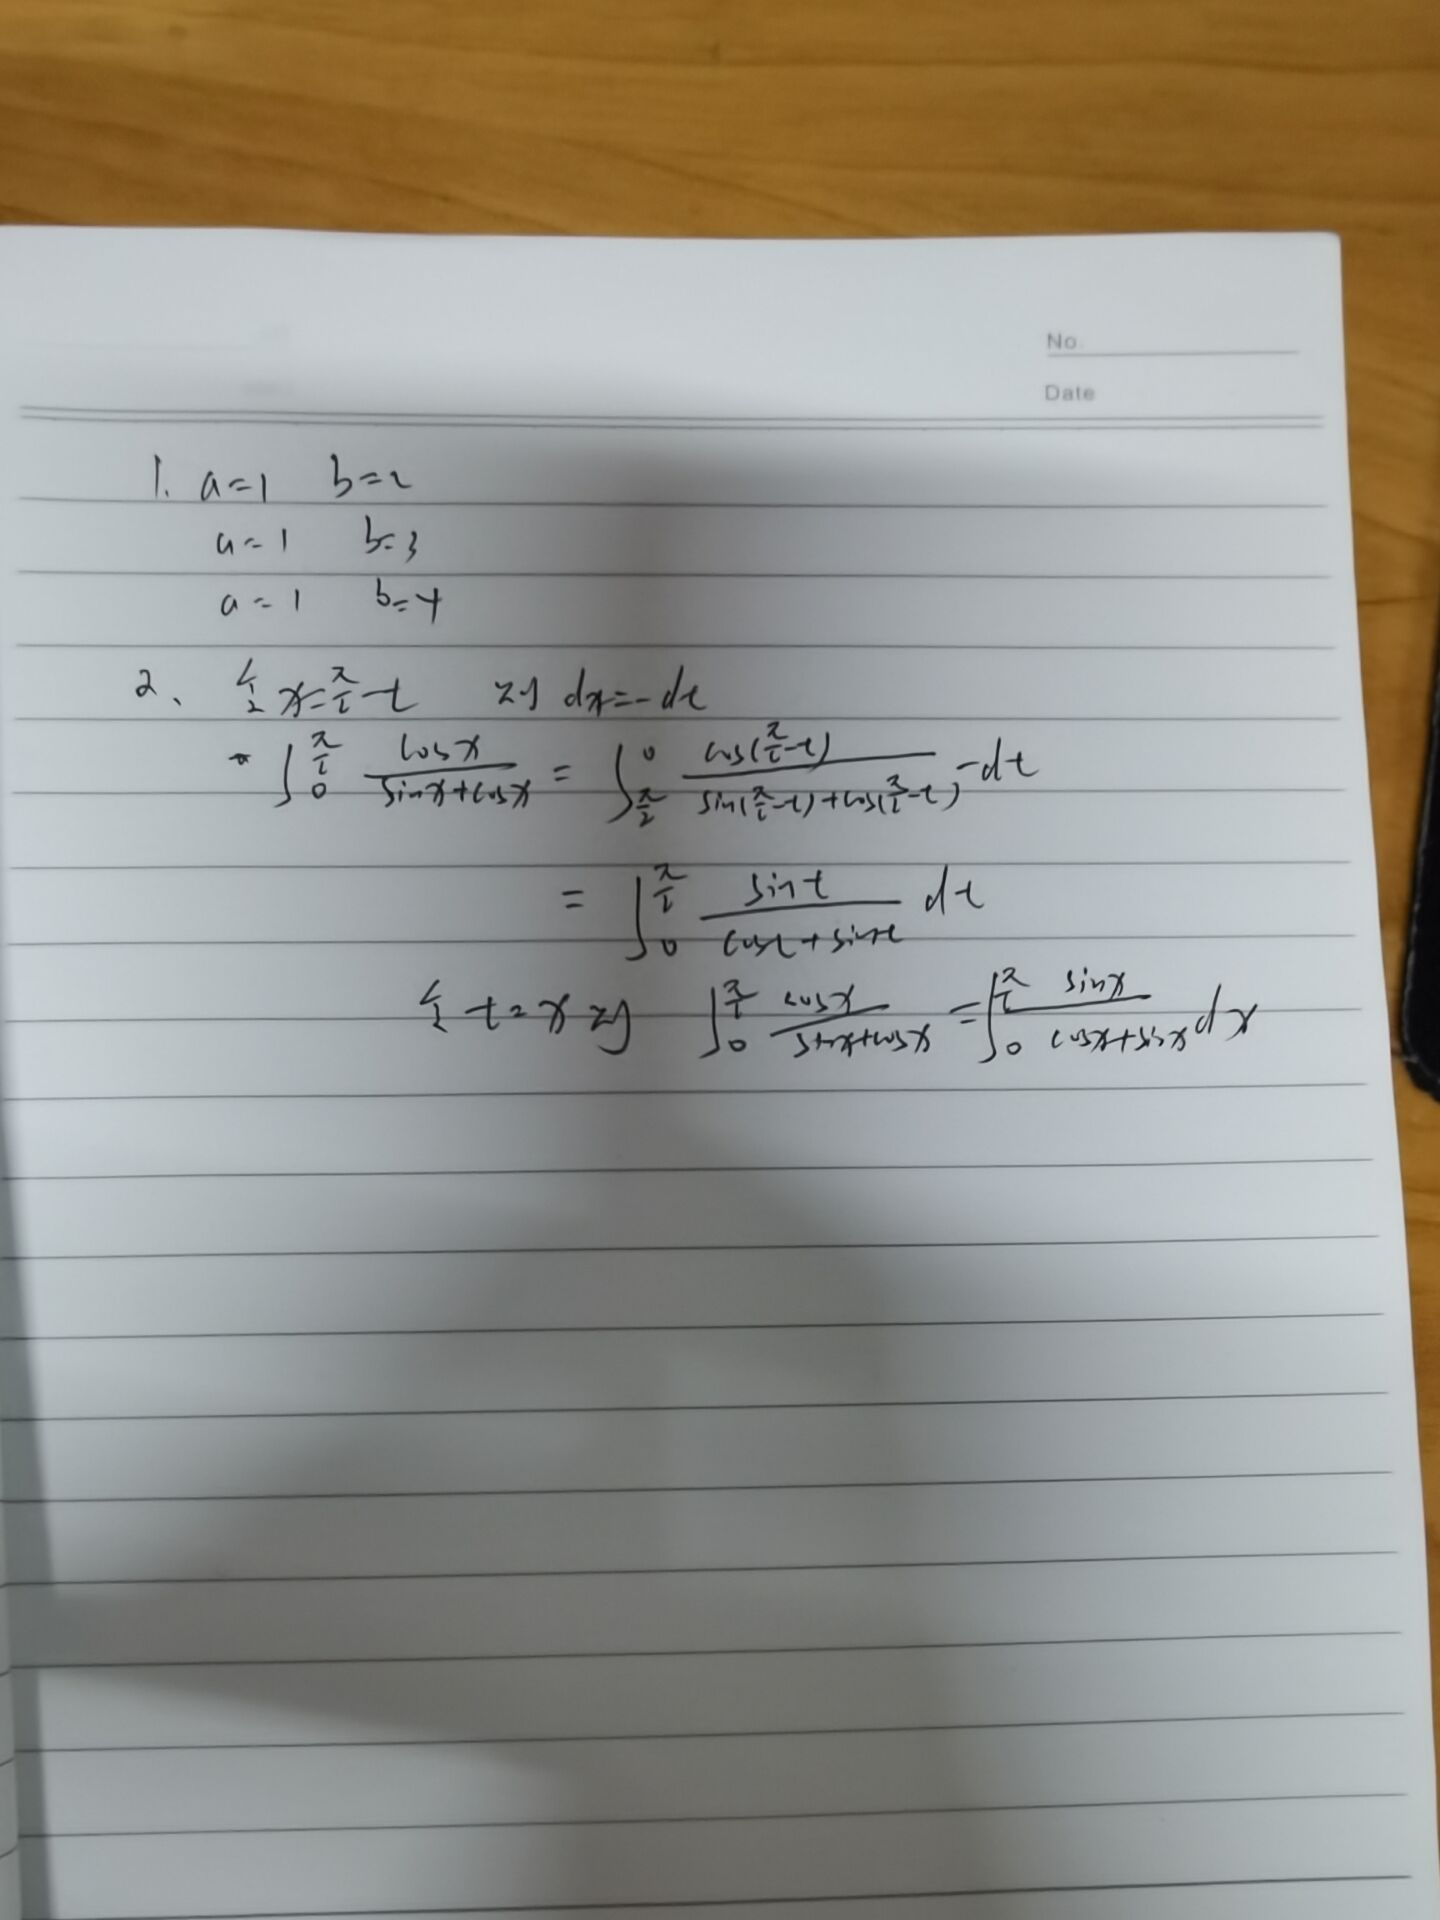 No.
Date
1. a=1 b=2
a=1 b=3
a=1 b=4
2、 令x=π/2-t 则 dx=-dt
∫_0^{π/2} cosx/(sinx+cosx) = ∫_{π/2}^0 cos(π/2-t)/(sin(π/2-t)+cos(π/2-t)) -dt
= ∫_0^{π/2} sint/(cost+sint) dt
令 t=x 则 ∫_0^{π/2} cosx/(sinx+cosx) = ∫_0^{π/2} sinx/(cosx+sinx) dx